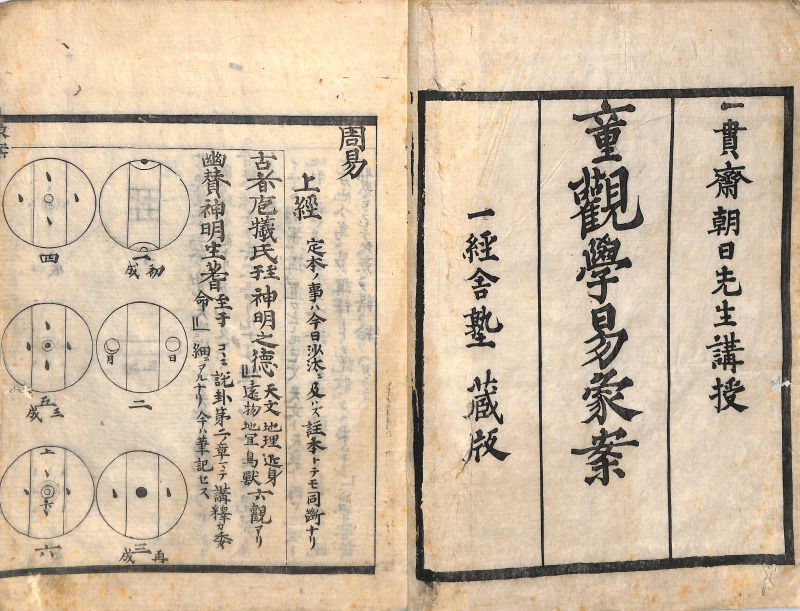 一貫齋朝日先生講授
童觀學易象案
一經舍塾 蔵版
周易
上經 定本ノ事ハ今日沙汰ニ及ハズ註本トテモ同断ナリ
古者庖犧氏至神明之德 天文地理近身
遠物地宜鳥獣六觀アリ
幽賛神明生蓍至于命 コヽニ説卦第二章マテ講釋カ委
細ニアルナリ今ハ筆記セス
初
一
成
日
月
二
再
三
成
四
三
五
成
上
六
六